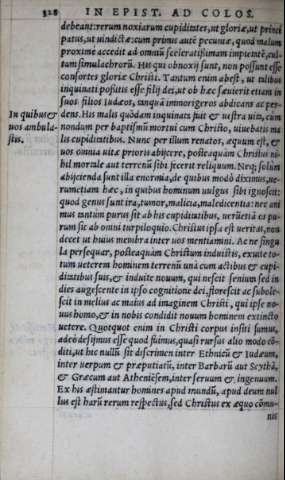 328 IN EPIST. AD COLOS.
debeant: rerum noxiarum cupiditates, ut gloriæ, ut princi
patus, ut uindictæ: cum primis aūt pecuniæ, quod malum
proxime accedit ad omniū sceleratissimam impietatē, cul-
tum simulachrorū. His qui obnoxij sunt, non possunt esse
consortes gloriæ Christi. Tantum enim abest, ut talibus
inquinati possitis esse filij dei, ut ob hæc sæuierit etiam in
suos filios Iudæos, tanquā immorigeros abdicans ac per-
In quibus & dens. His malis quōdam inquinata fuit & uestra uita, cum
uos ambula- nondum per baptismū mortui cum Christo, uiuebatis ma
stis. lis cupiditatibus. Nunc per illum renatos, æquum est, &
uos omnia uitæ prioris abijcere, posteaquām Christus ni-
hil mortale aut terrenū sibi fecerit reliquum. Neq; solùm
abijcienda sunt illa enormia, de quibus modò diximus, ue-
rumetiam hæc, in quibus hominum uulgus sibi ignoscit:
quod genus sunt ira, tumor, malicia, maledicentia: nec ani
mus tantùm purus sit ab his cupiditatibus, uerùetiā os pu-
rum sit ab omni turpiloquio. Christus ipsa est ueritas, non
decet ut huius membra inter uos mentiamini. Ac ne singu
la persequar, posteaquàm Christum induistis, exuite to-
tum ueterem hominem terrenū unà cum actibus & cupi-
ditatibus suis, & induite nouum, qui nescit senium sed in
dies augescente in ipso cognitione dei, florescit ac subole-
scit in melius ac maius ad imaginem Christi, qui ipse no-
uus homo, & in nobis condidit nouum hominem extincto
uetere. Quotquot enim in Christi corpus insiti sumus,
adeò desijmus esse quod fuimus, quasi rursus alio modo cō-
diti, ut hic nullū sit discrimen inter Ethnicū & Iudæum,
inter uerpum & præputiatū, inter Barbarū aut Scythā,
& Græcum aut Atheniēsem, inter seruum & ingenuum.
Ex his æstimantur homines apud mundū, apud deum nul
lus est harū rerum respectus, sed Christus ex æquo cōmu-
nis